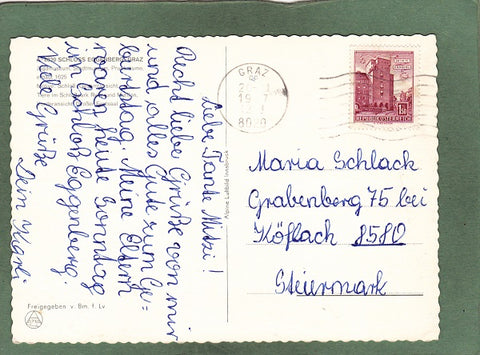 SCHLOSS EGGENBERG
GRAZ
Liebe Tante Mitzi!
Recht liebe Grüße von mir
und alles Gute zum Ge-
burtstag. Meine Eltern
waren heute Sonntag
im Schloß Eggenberg.
Viele Grüße
Dein Karli
Alpine Luftbild Innsbruck
Freigegeben v. Bm. f. Lv
GRAZ
8020
REPUBLIK ÖSTERREICH
Maria Schlack
Grabenberg 75 bei
Köflach 8580
Steiermark